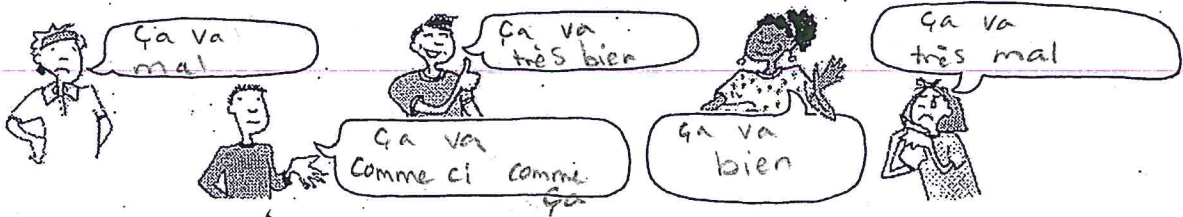 Ça va
mal
Ça va
très bien
Ça va
très mal
Ça va
comme ci comme
ça
ça va
bien